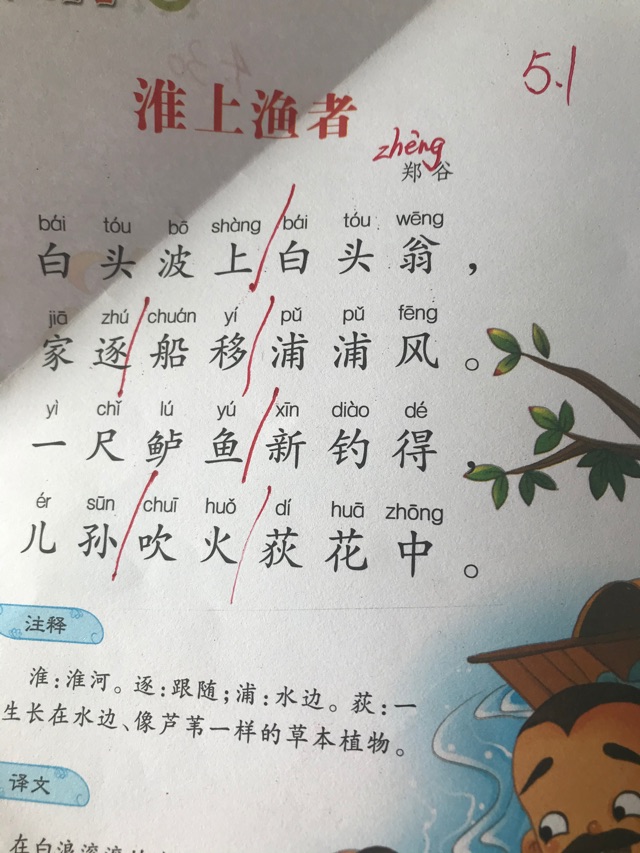 5.1
淮上渔者
zhèng
郑谷
bái tóu bō shàng bái tóu wēng
白头波上白头翁，
jiā zhú chuán yí pǔ pǔ fēng
家逐船移浦浦风。
yì chǐ lú yú xīn diào dé
一尺鲈鱼新钓得，
ér sūn chuī huǒ dí huā zhōng
儿孙吹火荻花中。
注释
淮：淮河。逐：跟随；浦：水边。荻：一
生长在水边、像芦苇一样的草本植物。
译文
在白浪滚滚的